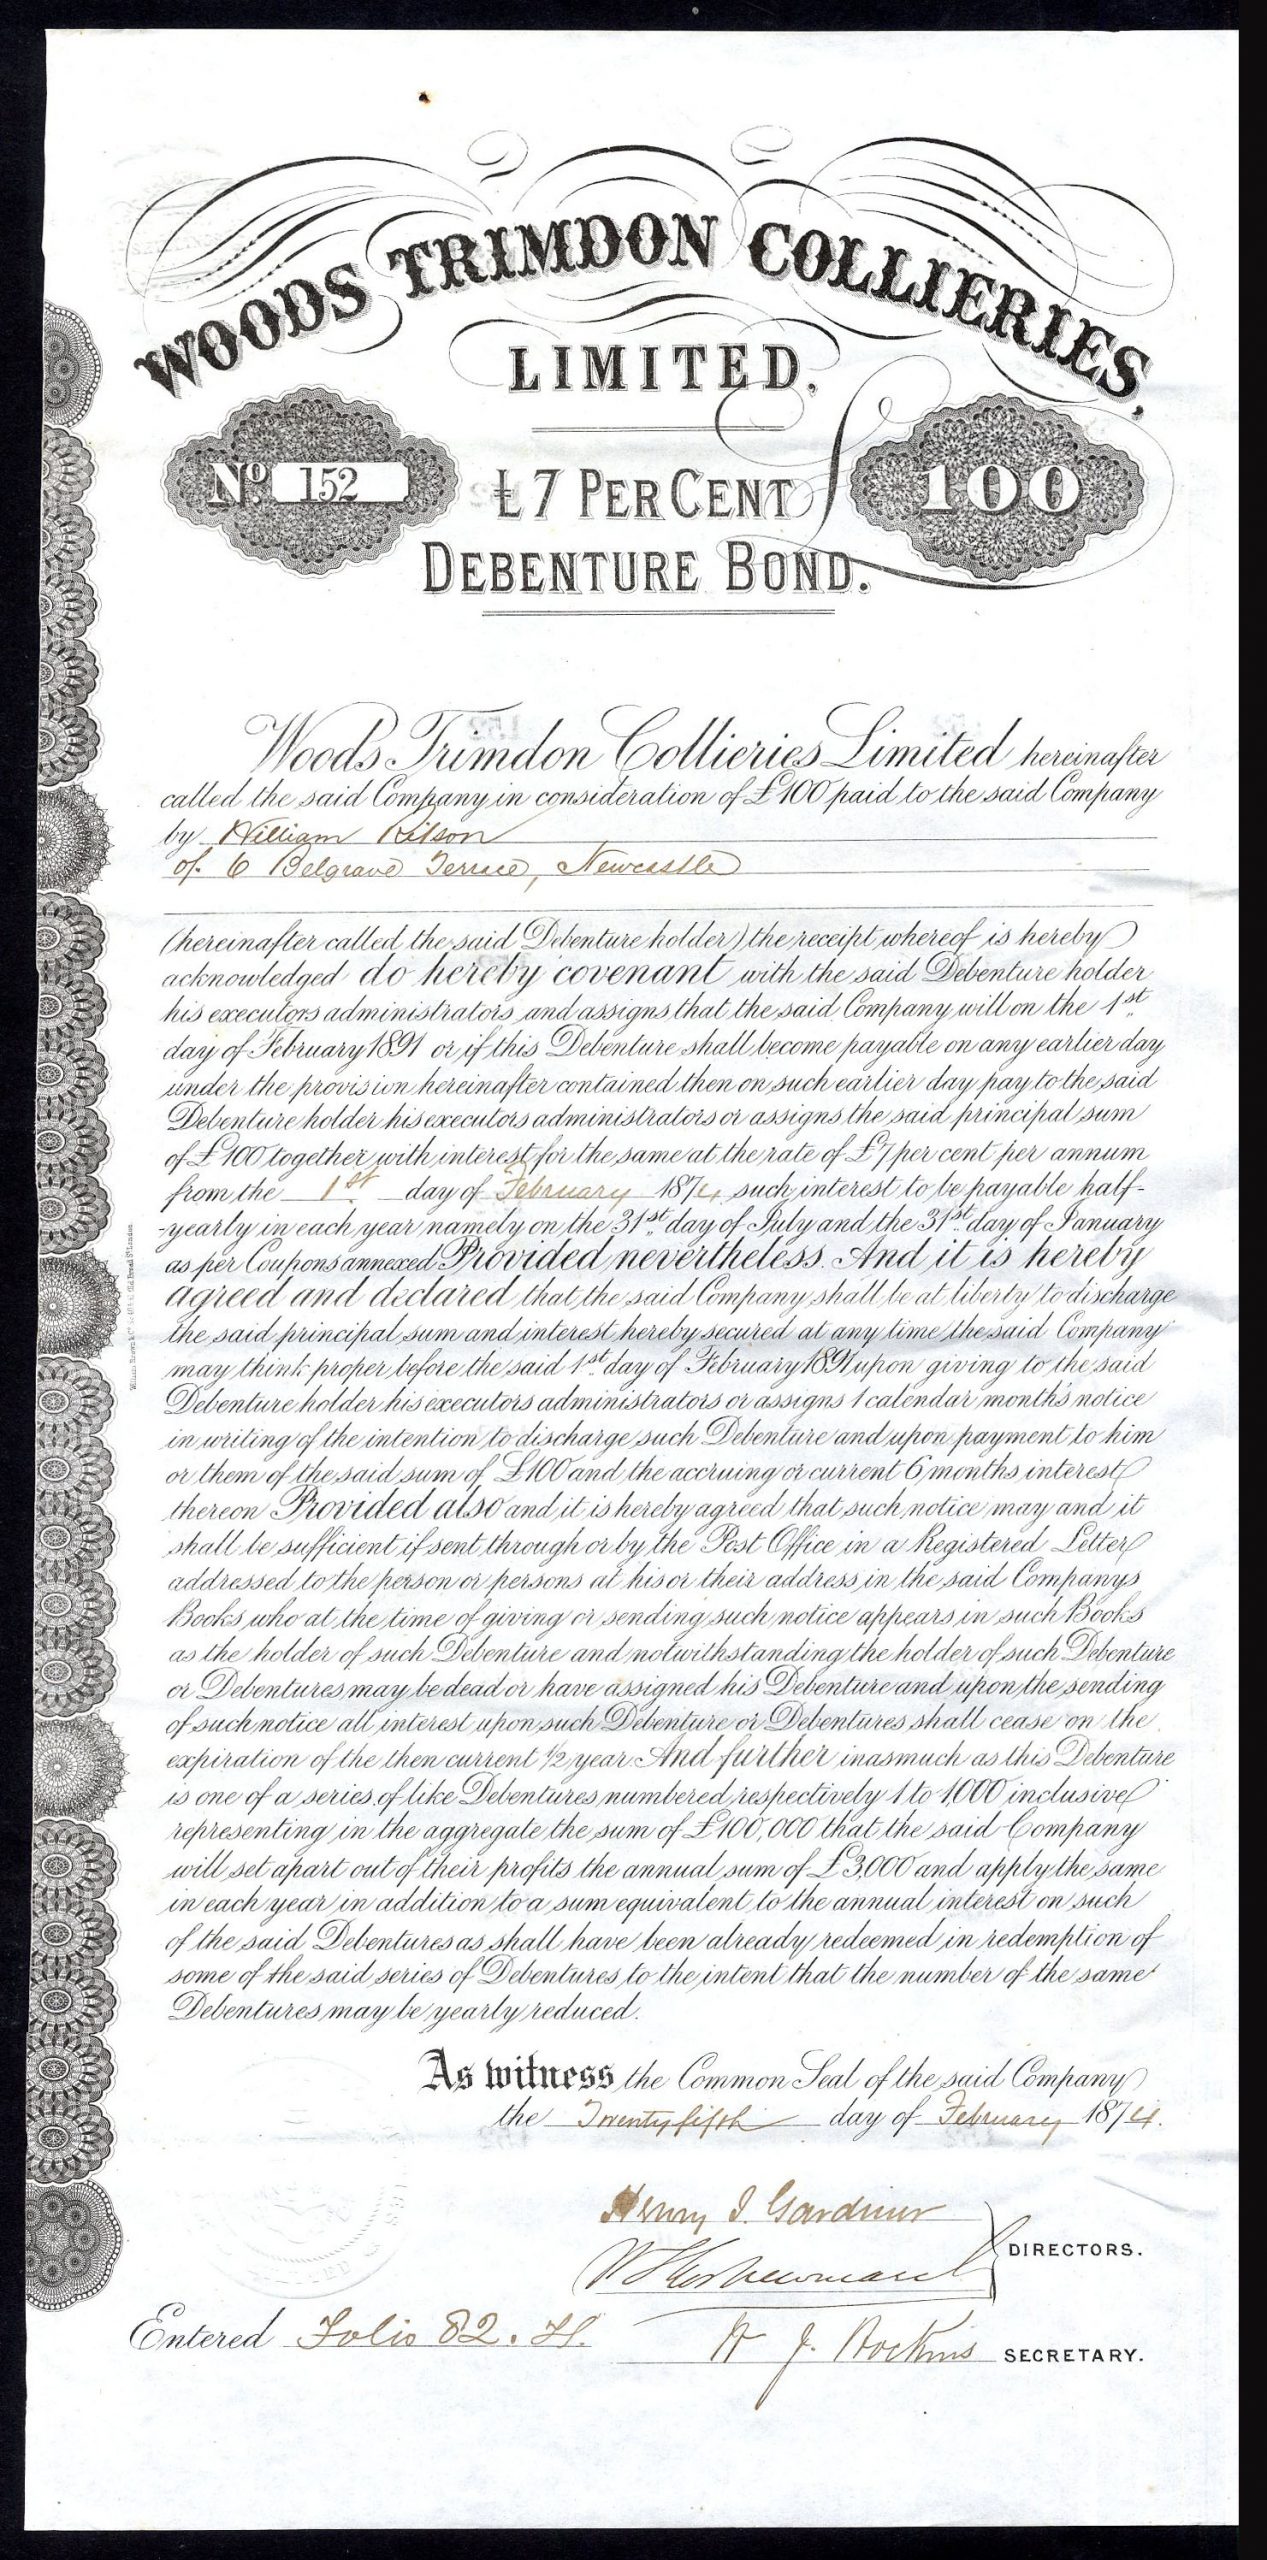 WOODS TRIMDON COLLIERIES,
LIMITED.
No. 152
£7 PER CENT
100
DEBENTURE BOND.
Woods Trimdon Collieries Limited hereinafter
called the said Company in consideration of £100 paid to the said Company
by William Kitson
of 6 Belgrave Terrace, Newcastle
(hereinafter called the said Debenture holder) the receipt whereof is hereby
acknowledged do hereby covenant with the said Debenture holder
his executors administrators and assigns that the said Company will on the 1st
day of February 1891 or if this Debenture shall become payable on any earlier day
under the provision hereinafter contained then on such earlier day pay to the said
Debenture holder his executors administrators or assigns the said principal sum
of £100 together with interest for the same at the rate of £7 per cent per annum
from the 1st day of February 1874 such interest to be payable half-
-yearly in each year namely on the 31st day of July and the 31st day of January
as per Coupons annexed Provided nevertheless. And it is hereby
agreed and declared that the said Company shall be at liberty to discharge
the said principal sum and interest hereby secured at any time the said Company
may think proper before the said 1st day of February 1891 upon giving to the said
Debenture holder his executors administrators or assigns 1 calendar month's notice
in writing of the intention to discharge such Debenture and upon payment to him
or them of the said sum of £100 and the accruing or current 6 months interest
thereon Provided also and it is hereby agreed that such notice may and it
shall be sufficient if sent through or by the Post Office in a Registered Letter
addressed to the person or persons at his or their address in the said Companys
Books who at the time of giving or sending such notice appears in such Books
as the holder of such Debenture and notwithstanding the holder of such Debenture
or Debentures may be dead or have assigned his Debenture and upon the sending
of such notice all interest upon such Debenture or Debentures shall cease on the
expiration of the then current ½ year. And further inasmuch as this Debenture
is one of a series of like Debentures numbered respectively 1 to 1,000 inclusive
representing in the aggregate the sum of £100,000 that the said Company
will set apart out of their profits the annual sum of £3,000 and apply the same
in each year in addition to a sum equivalent to the annual interest on such
of the said Debentures as shall have been already redeemed in redemption of
some of the said series of Debentures to the intent that the number of the same
Debentures may be yearly reduced.
As witness the Common Seal of the said Company
the Twentyfifth day of February 1874.
Henry J. Gardiner
DIRECTORS.
Entered Folio 82.
SECRETARY.